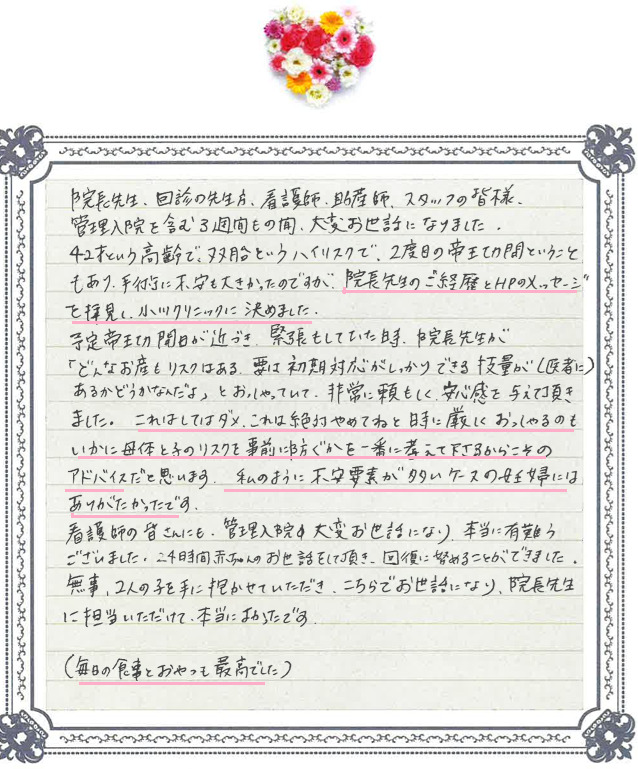 院長先生、回診の先生方、看護師、助産師、スタッフの皆様、
管理入院を含む3週間もの間、大変お世話になりました。
42才という高齢で、双胎というハイリスクで、2度目の帝王切開ということ
もあり、手術に不安も大きかったのですが、院長先生のご経歴とHPのメッセージ
を拝見し、小川クリニックに決めました。
予定帝王切開日が近づき、緊張もしていた時、院長先生が
「どんなお産もリスクはある。要は初期対応がしっかりできる技量が(医者に)
あるかどうかなんだよ」とおっしゃっていて、非常に頼もしく、安心感を与えて頂き
ました。これはしてはダメ、これは絶対やめてねと時に厳しくおっしゃるのも
いかに母体と子のリスクを事前に防ぐかを一番に考えて下さるからこその
アドバイスだと思います。私のように不安要素が多いケースの妊婦には
ありがたかったです。
看護師の皆さんにも、管理入院中大変お世話になり、本当に有難う
ございました。24時間赤ちゃんのお世話をして頂き、回復に努めることができました。
無事、2人の子を手に抱かせていただき、こちらでお世話になり、院長先生
に担当いただけて、本当によかったです。
(毎日の食事とおやつも最高でした)